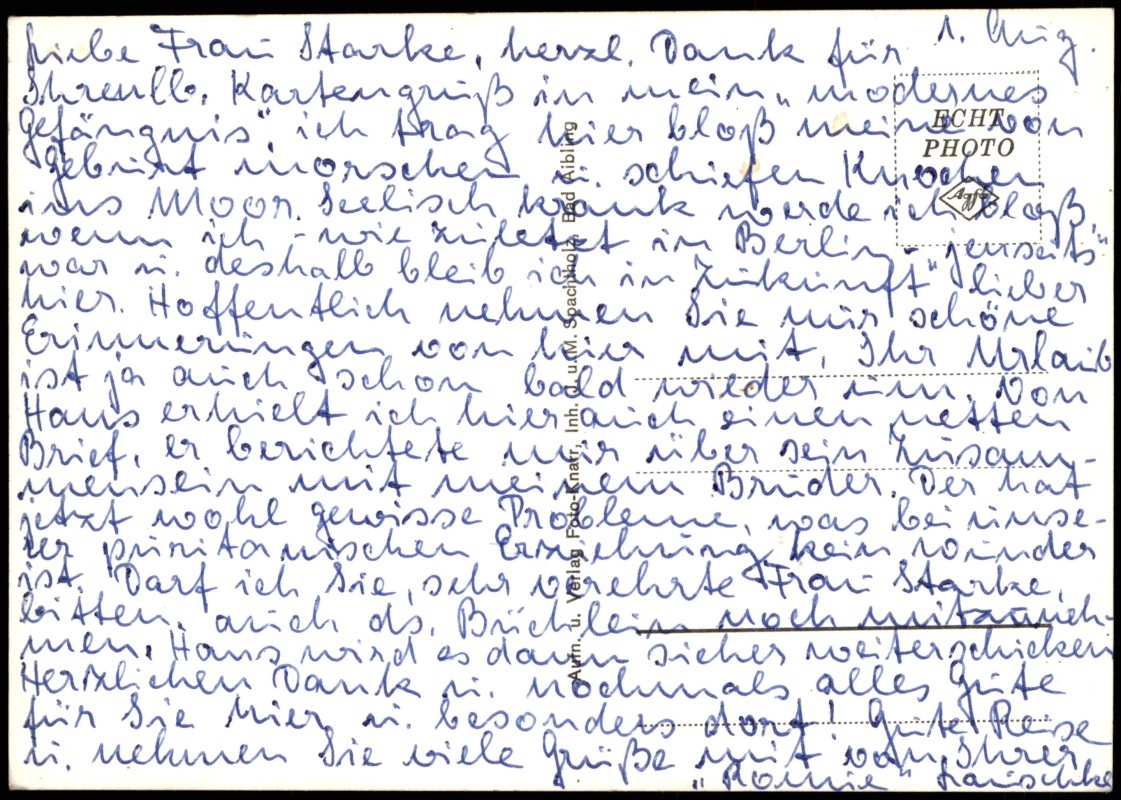 1. Aug.
Liebe Frau Starke, herzl. Dank für
Ihren lb. Kartengruß in mein „modernes
Gefängnis" ich trag hier bloß meine von
Geburt morschen u. schiefen Knochen
ins Moor. Seelisch krank werde ich bloß,
wenn ich - wie zuletzt in Berlin - „jenseits"
war u. deshalb bleib ich in „Zukunft" lieber
hier. Hoffentlich nehmen Sie nur schöne
Erinnerungen von hier mit, Ihr Urlaub
ist ja auch schon bald wieder um. Von
Hans erhielt ich hier auch einen netten
Brief, er berichtete mir über sein Zusam-
mensein mit meinem Bruder. Der hat
jetzt wohl gewisse Probleme, was bei unse-
rer puritanischen Erziehung kein Wunder
ist. Darf ich Sie, sehr verehrte Frau Starke,
bitten, auch ds. Büchlein noch mitzuneh-
men, Hans wird es dann sicher weiterschicken
Herzlichen Dank u. nochmals alles Gute
für Sie hier u. besonders dort! Gute Reise
u. nehmen Sie viele Grüße mit von Ihrer
ECHT
PHOTO
Agfa
Aufn. u. Verlag Foto-Knarr, Inh. J. u. M. Spachtholz, Bad Aibling